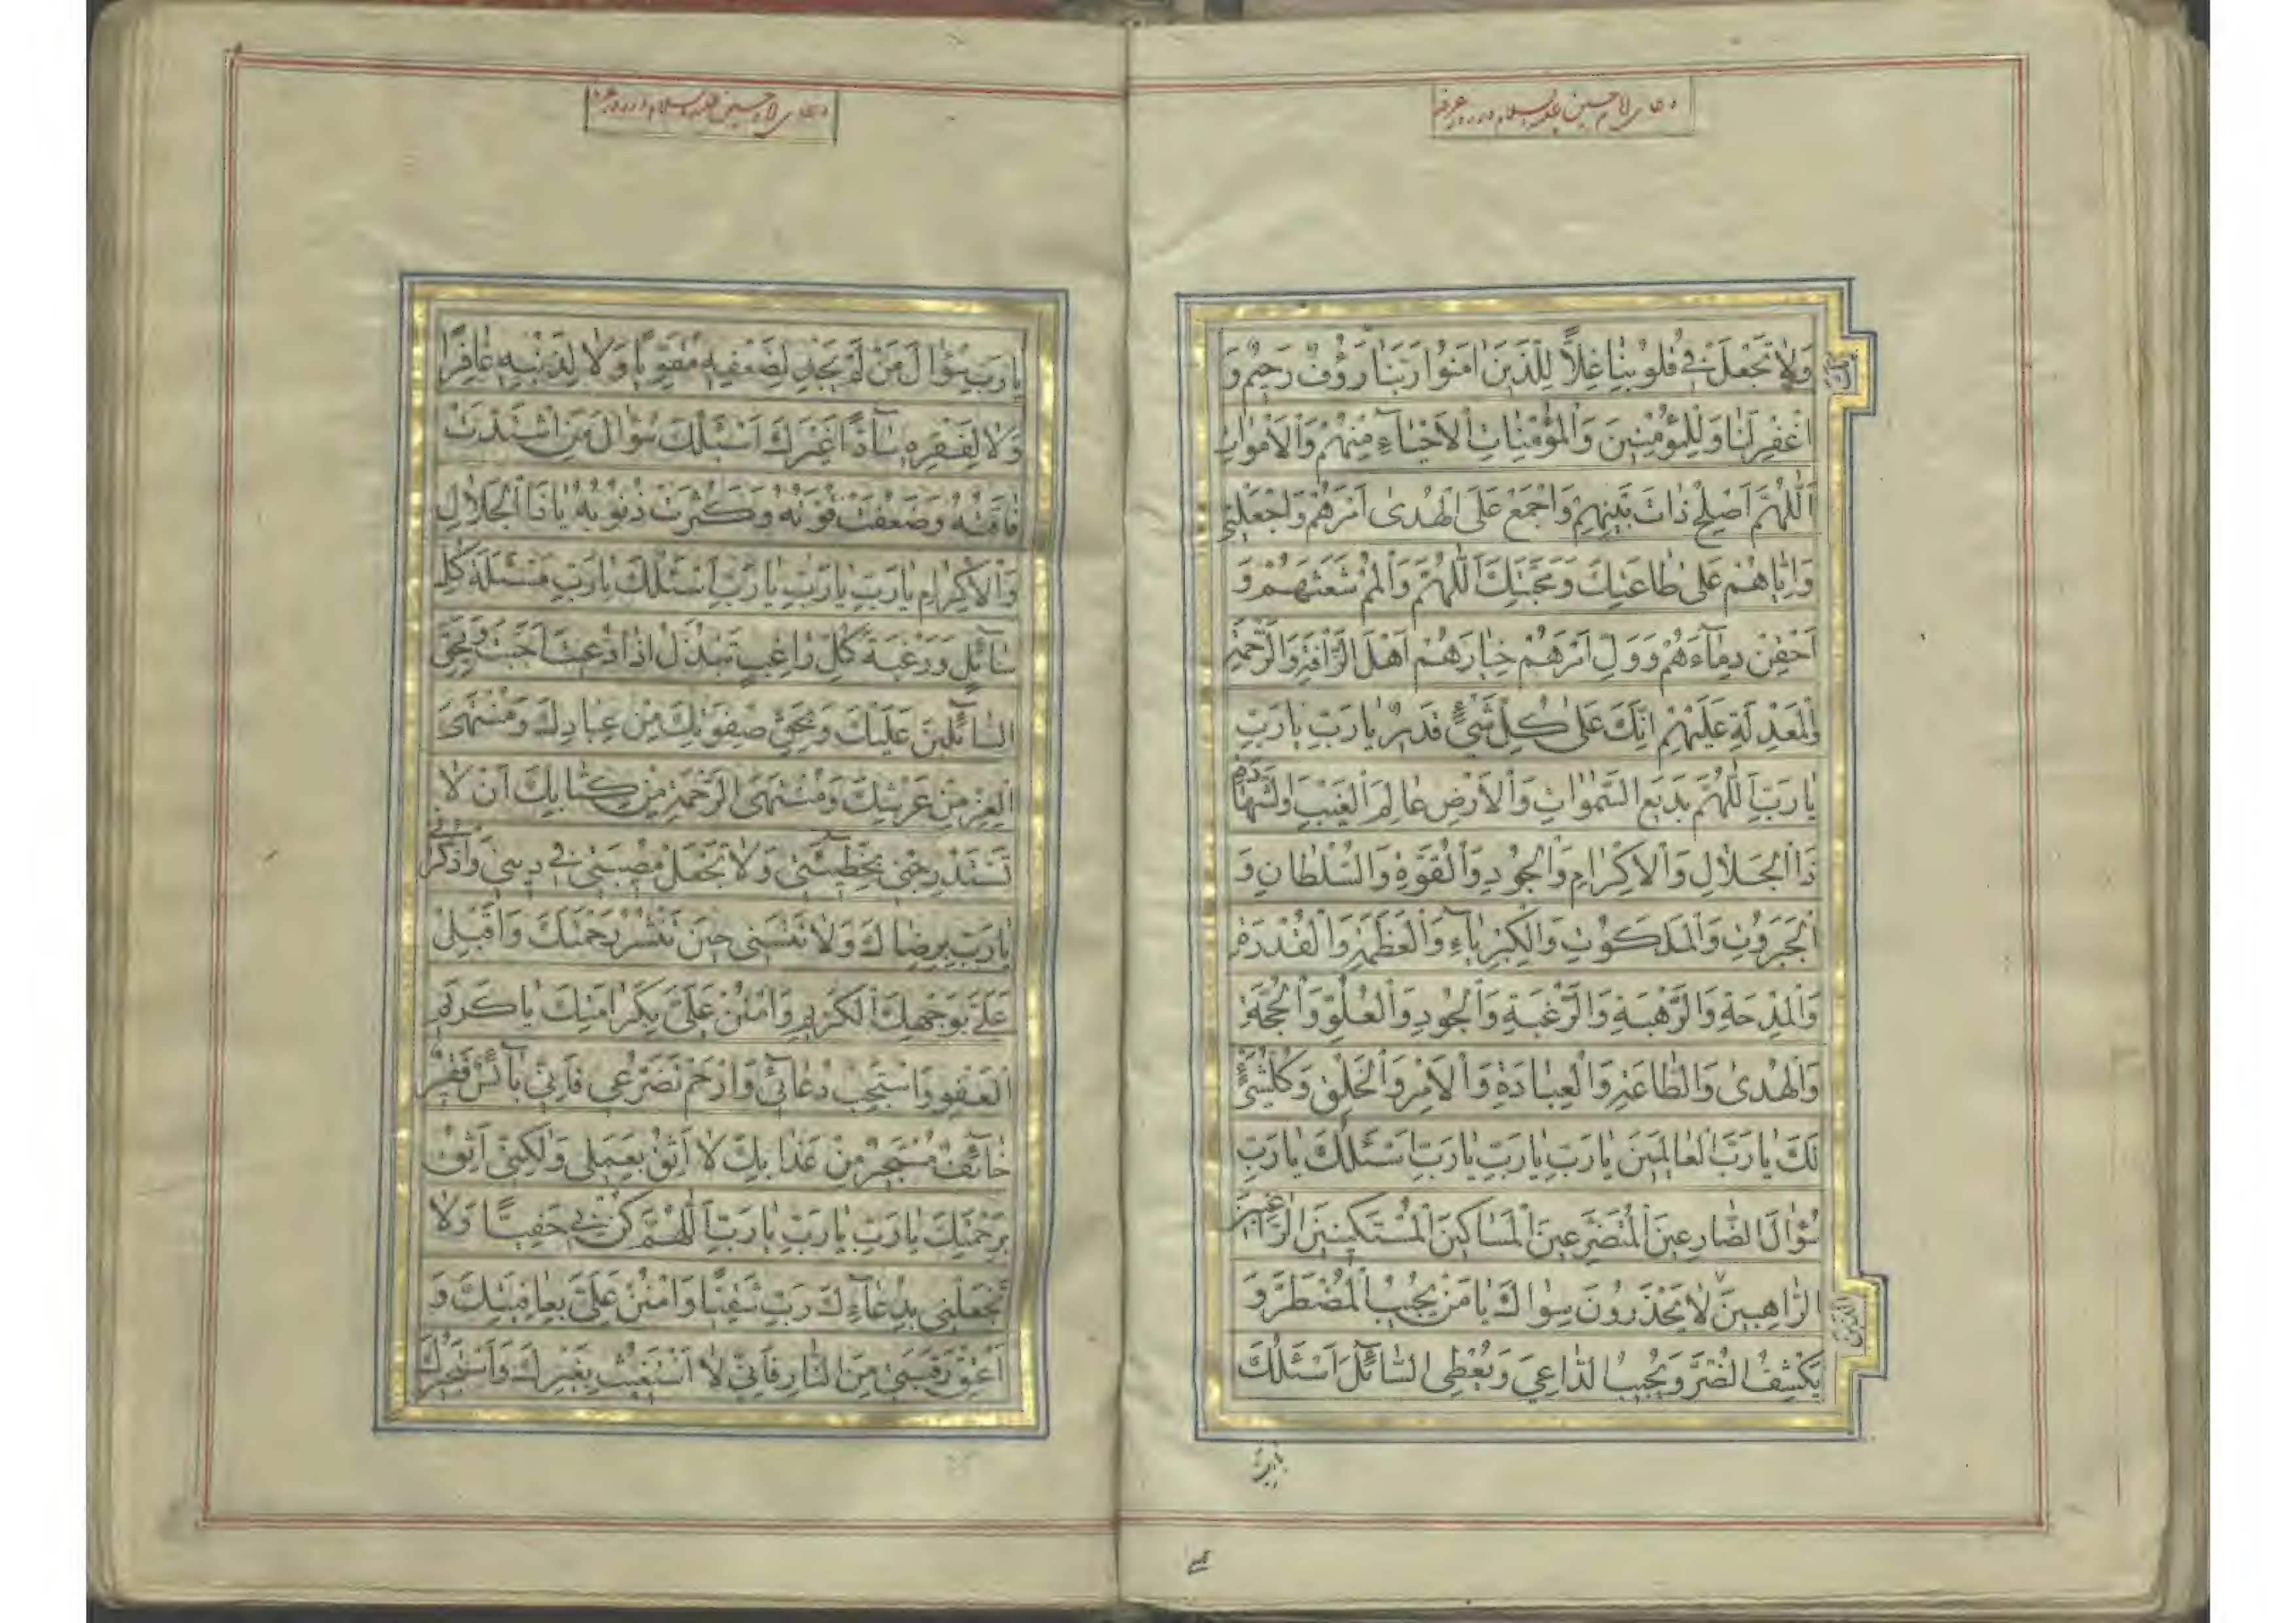 دعای امام حسین علیه السلام در روز عرفه
وَلاٰ تَجْعَلْ فی قُلُوبِنٰا غِلّاً لِلَّذینَ اٰمَنُوا رَبَّنٰا رَؤُفٌ رَحیمٌ وَ
اغْفِرْ لَنٰا وَلِلْمُؤْمِنینَ وَالْمُؤْمِنٰاتِ الْاَحْیٰاۤءِ مِنْهُمْ وَالْاَمْوٰاتِ
اَللّٰهُمَّ اَصْلِحْ ذٰاتَ بَیْنِهِمْ وَاجْمَعْ عَلَی الْهُدیٰ اَمْرَهُمْ وَاجْعَلْنی
وَاِیّٰاهُمْ عَلیٰ طٰاعَتِكَ وَمَحَبَّتِكَ اَللّٰهُمَّ وَالْمُمْ شَعَثَهُمْ وَ
احْقِنْ دِمٰاۤءَهُمْ وَوَلِّ اَمْرَهُمْ خِیٰارَهُمْ اَهْلَ الرَّاْفَةِ وَالرَّحْمَةِ
وَالْمَعْدِلَةِ عَلَیْهِمْ اِنَّكَ عَلیٰ كُلِّ شَیْءٍ قَدیرٌ یٰا رَبِّ یٰا رَبِّ
یٰا رَبِّ اَللّٰهُمَّ بَدیعَ السَّمٰوٰاتِ وَالْاَرْضِ عٰالِمَ الْغَیْبِ وَالشَّهٰادَةِ
ذَا الْجَلٰالِ وَالْاِكْرٰامِ وَالْجُودِ وَالْقُوَّةِ وَالسُّلْطٰانِ وَ
الْجَبَرُوتِ وَالْمَلَكُوتِ وَالْكِبْرِیٰاۤءِ وَالْعَظَمَةِ وَالْقُدْرَةِ
وَالْمِدْحَةِ وَالرَّهْبَةِ وَالرَّغْبَةِ وَالْجُودِ وَالْعُلُوِّ وَالْحُجَّةِ
وَالْهُدیٰ وَالطّٰاعَةِ وَالْعِبٰادَةِ وَالْاَمْرِ وَالْخَلْقِ وَكُلُّ شَیْءٍ
لَكَ یٰا رَبَّ الْعٰالَمینَ یٰا رَبِّ یٰا رَبِّ یٰا رَبِّ اَسْئَلُكَ یٰا رَبِّ
سُؤٰالَ الضّٰارِعینَ الْمُتَضَرِّعینَ الْمَسٰاكینَ الْمُسْتَكینینَ الرّٰاغِبینَ
الرّٰاهِبینَ لاٰ یَحْذَرُونَ سِوٰاكَ یٰا مَنْ یُجیبُ الْمُضْطَرَّ وَ
یَكْشِفُ الضُّرَّ وَیُجیبُ الدّٰاعِیَ وَیُعْطِی السّٰاۤئِلَ اَسْئَلُكَ
یا رب
دعای امام حسین علیه السلام در روز عرفه
یٰا رَبِّ سُؤٰالَ مَنْ لَمْ یَجِدْ لِضَعْفِهِ مُقَوِّیاً وَلاٰ لِذَنْبِهِ غٰافِرًا
وَلاٰ لِفَقْرِهِ سٰاۤدًّا غَیْرَكَ اَسْئَلُكَ سُؤٰالَ مَنِ اشْتَدَّتْ
فٰاقَتُهُ وَضَعُفَتْ قُوَّتُهُ وَكَثُرَتْ ذُنُوبُهُ یٰا ذَا الْجَلٰالِ
وَالْاِكْرٰامِ یٰا رَبِّ یٰا رَبِّ یٰا رَبِّ اَسْئَلُكَ یٰا رَبِّ مَسْئَلَةَ كُلِّ
سٰاۤئِلٍ وَرَغْبَةَ كُلِّ رٰاغِبٍ تَبَذَّلَ اِذٰا دُعیتَ اَجَبْتَ وَبِحَقِّ
السّٰاۤئِلینَ عَلَیْكَ وَبِحَقِّ صِفْوَتِكَ مِنْ عِبٰادِكَ وَمُنْتَهَی
الْعِزِّ مِنْ عَرْشِكَ وَمُنْتَهَی الرَّحْمَةِ مِنْ كِتٰابِكَ اَنْ لاٰ
تَسْتَدْرِجَنی بِخَطیئَتی وَلاٰ تَجْعَلْ مُصیبَتی فی دینی وَاذْكُرْنی
یٰا رَبِّ بِرِضٰاكَ وَلاٰ تَنْسَنی حینَ تَنْشُرُ رَحْمَتَكَ وَاَقْبِلْ
عَلَیَّ بِوَجْهِكَ الْكَریمِ وَامْنُنْ عَلَیَّ بِكَرٰامَتِكَ یٰا كَریمَ
الْعَفْوِ وَاسْتَجِبْ دُعٰاۤئی وَارْحَمْ تَضَرُّعی فَاِنّی بٰاۤئِسٌ فَقیرٌ
خٰاۤئِفٌ مُسْتَجیرٌ مِنْ عَذٰابِكَ لاٰ اَثِقُ بِعَمَلی وَلٰكِنّی اَثِقُ
بِرَحْمَتِكَ یٰا رَبِّ یٰا رَبِّ یٰا رَبِّ اَللّٰهُمَّ كُنْ بی حَفِیًّا وَلاٰ
تَجْعَلْنی بِدُعٰاۤءِكَ رَبِّ شَقِیًّا وَامْنُنْ عَلَیَّ بِعٰافِیَتِكَ وَ
اَعْتِقْ رَقَبَتی مِنَ النّٰارِ فَاِنّی لاٰ اَسْتَغیثُ بِغَیْرِكَ وَاَسْتَجیرُكَ